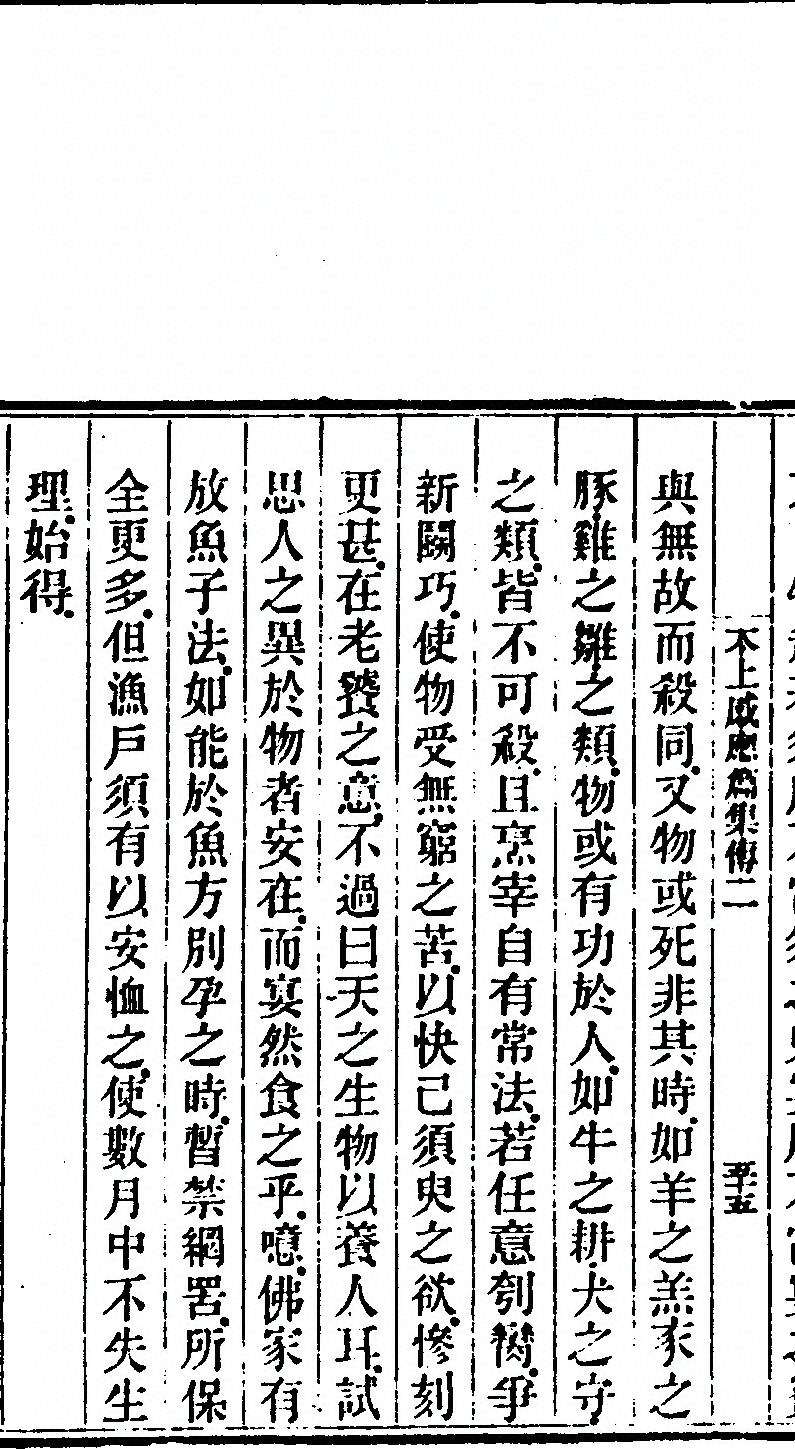 太上感應篇集傳二
五十五
與無故而殺同又物或死非其時如羊之羔豕之
豚雞之雛之類物或有功於人如牛之耕犬之守
之類皆不可殺且烹宰自有常法若任意刳臠爭
新鬬巧使物受無窮之苦以快己須臾之欲慘刻
更甚在老饕之意不過曰天之生物以養人耳試
思人之異於物者安在而宴然食之乎噫佛家有
放魚子法如能於魚方別孕之時暫禁網罟所保
全更多但漁戶須有以安恤之使數月中不失生
理始得